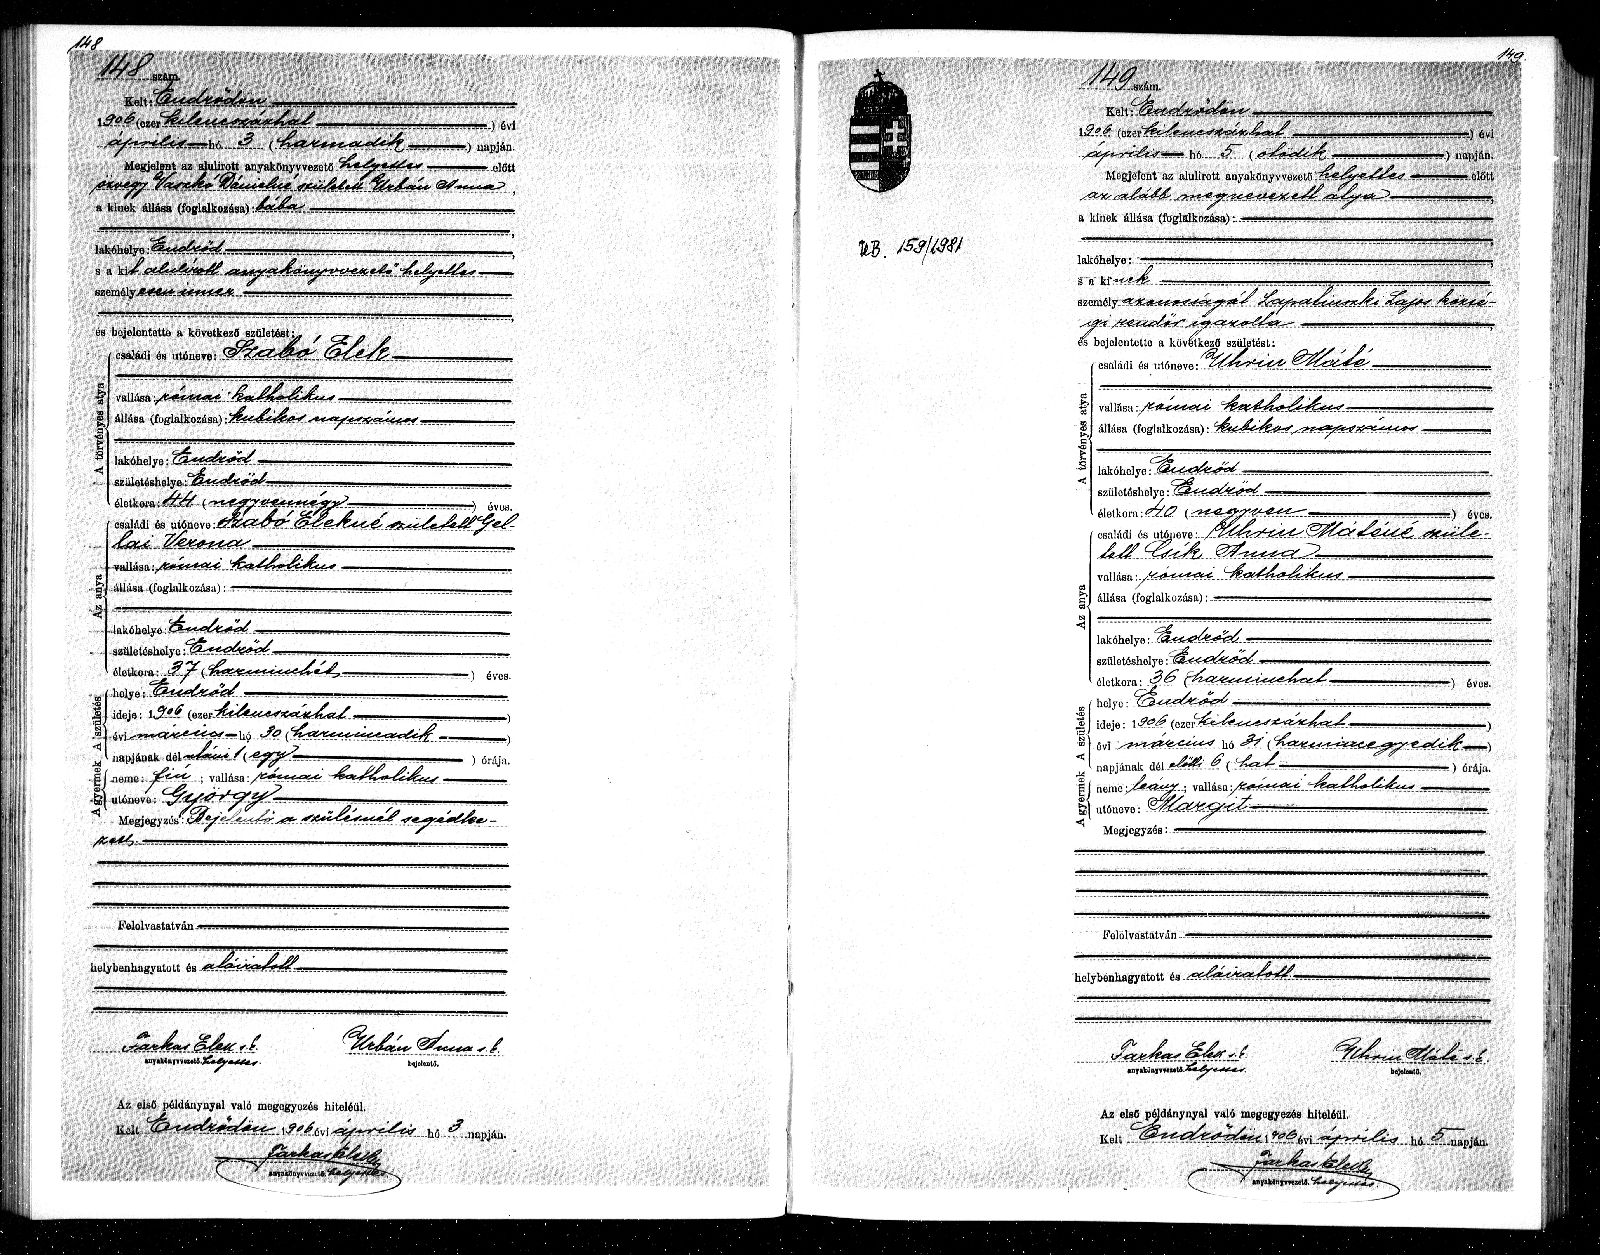 148
148 szám.
Kelt: Endrődön
1906 (ezer kilencszázhat) évi
április hó 3 (harmadik) napján.
Megjelent az alulirott anyakönyvvezető helyettes előtt
özvegy Vaszkó Dánielné született Urbán Anna,
a kinek állása (foglalkozása) bába
lakóhelye: Endrőd
s a kit alulírott anyakönyvvezető helyettes
személyesen ismer
és bejelentette a következő születést:
A törvényes atya
családi és utóneve: Szabó Elek
vallása: római katholikus
állása (foglalkozása): kubikos napszámos
lakóhelye: Endrőd
születéshelye: Endrőd
életkora: 44 (negyvennégy) éves.
Az anya
családi és utóneve: Szabó Elekné született Gel-
lai Verona
vallása: római katholikus
állása (foglalkozása):
lakóhelye: Endrőd
születéshelye: Endrőd
életkora: 37 (harminchét) éves.
A születés
helye: Endrőd
ideje: 1906 (ezer kilencszázhat)
évi március hó 30 (harmincadik)
napjának dél utáni 1 (egy) órája.
A gyermek
neme: fiú; vallása: római katholikus
utóneve: György
Megjegyzés: Bejelentő a szülésnél segédke-
zett.
Felolvastatván
helybenhagyatott és aláíratott
Farkas Elek s.k. Urbán Anna s.k.
anyakönyvvezető helyettes bejelentő.
Az első példánynyal való megegyezés hiteléül.
Kelt Endrődön 1906 évi április hó 3 napján.
Farkas Elek
anyakönyvvezető helyettes
UB. 159/1981
149
149 szám.
Kelt: Endrődön
1906. (ezer kilencszázhat) évi
április hó 5 (ötödik) napján.
Megjelent az alulirott anyakönyvvezető helyettes előtt
az alább megnevezett atya
a kinek állása (foglalkozása):
lakóhelye:
s a kinek
személyazonosságát Lapatinszki Lajos közsé-
gi rendőr igazolta
és bejelentette a következő születést:
A törvényes atya
családi és utóneve: Uhrin Máté
vallása: római katholikus
állása (foglalkozása): kubikos napszámos
lakóhelye: Endrőd
születéshelye: Endrőd
életkora: 40 (negyven) éves.
Az anya
családi és utóneve: Uhrin Máténé szüle-
tett Csík Anna
vallása: római katholikus
állása (foglalkozása):
lakóhelye: Endrőd
születéshelye: Endrőd
életkora: 36 (harminchat) éves.
A születés
helye: Endrőd
ideje: 1906 (ezer kilencszázhat)
évi március hó 31 (harmincegyedik)
napjának dél előtti 6 (hat) órája.
A gyermek
neme: leány; vallása: római katholikus
utóneve: Margit
Megjegyzés:
Felolvastatván
helybenhagyatott és aláíratott
Farkas Elek s.k. Uhrin Máté s.k.
anyakönyvvezető. helyettes bejelentő.
Az első példánynyal való megegyezés hiteléül.
Kelt Endrődön 1906 évi április hó 5 napján.
Farkas Elek
anyakönyvvezető. helyettes